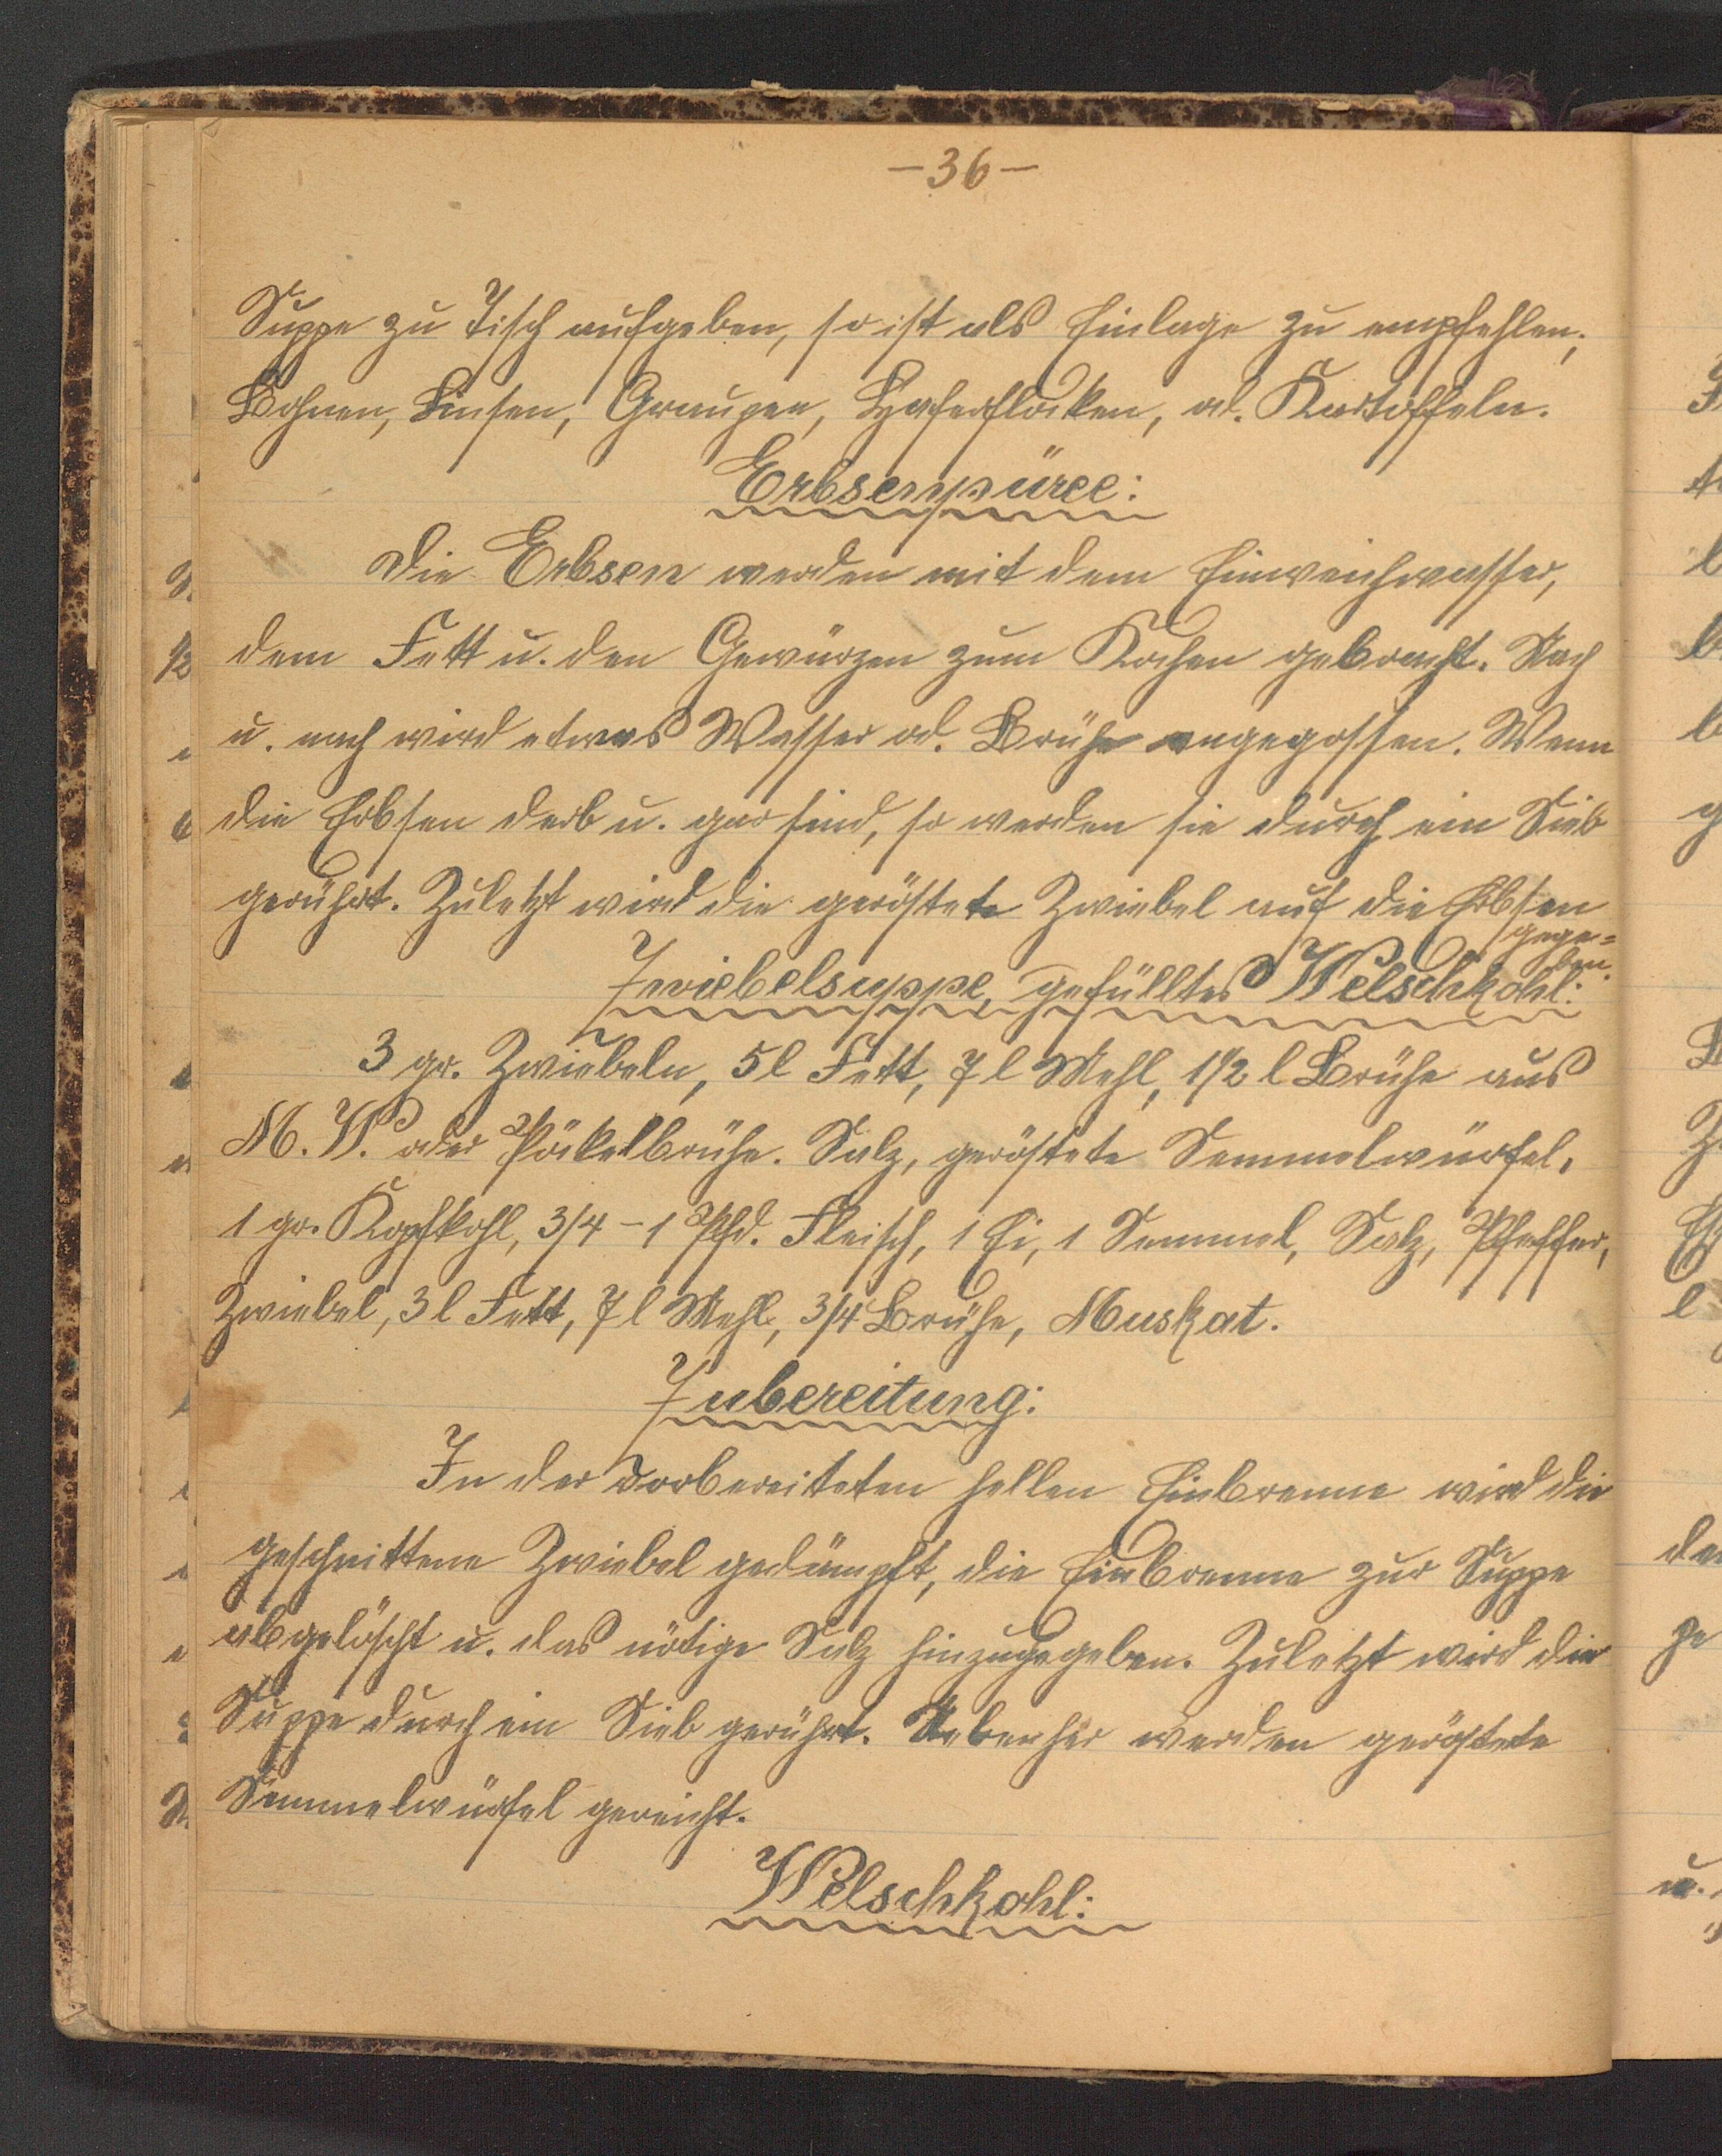 -36-
Suppe zu Tisch aufgeben, so ist als Einlage zu empfehlen;
Bohnen, Linsen, Graupen, Haferflocken, od. Kartoffeln.
Erbsenpüree:
Die Erbsen werden mit dem Einweichwasser,
dem Fett u. den Gewürzen zum Kochen gebracht. Nach
u. nach wird etwas Wasser od. Brühe angegossen. Wenn
die Erbsen derb u. gar sind, so werden sie durch ein Sieb
gerührt. Zuletzt wird die geröstete Zwiebel auf die Erbsen
gege=
ben.
Zwiebelsuppe, gefülltes Welschkohl:
3 gr. Zwiebeln, 5 l Fett, 7 l Mehl, 1 1/2 l Brühe aus
M. W. oder Pökelbrühe. Salz, geröstete Semmelwürfel,
1 gr. Kopfkohl, 3/4 - 1 Pfd. Fleisch, 1 Ei, 1 Semmel, Salz, Pfeffer,
Zwiebel, 3 l Fett, 7 l Mehl, 3/4 Brühe, Muskat.
Zubereitung:
In der vorbereiteten hellen Einbrenne wird die
geschnittene Zwiebel gedämpft, die Einbrenne zur Suppe
abgelöscht u. das nötige Salz hinzugegeben. Zuletzt wird die
Suppe durch ein Sieb gerührt. Nebenher werden geröstete
Semmelwürfel gereicht.
Welschkohl: